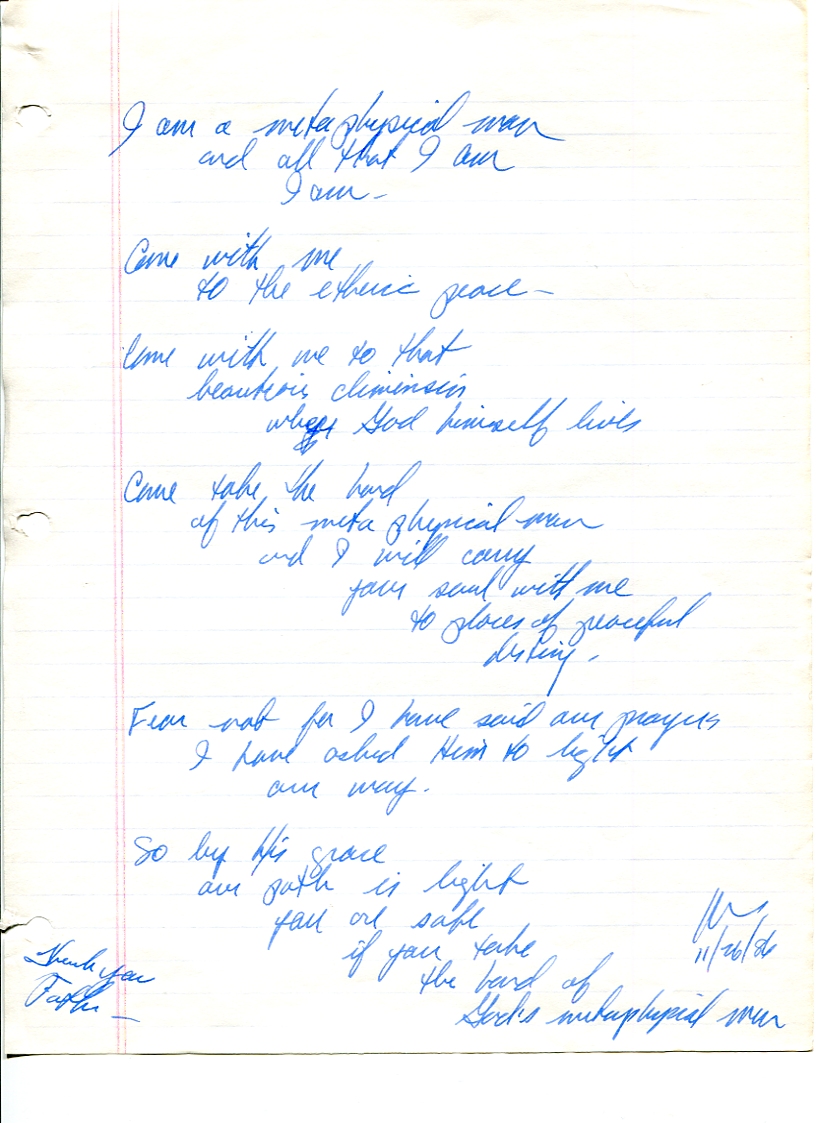 I am a metaphysical man
and all that I am
I am -
Come with me
to the etheric peace -
Come with me to that
beauteous dimension
where God himself lives
Come take the hand
of this metaphysical man
and I will carry
your soul with me
to places of peaceful
destiny.
Fear not for I have said our prayers
I have asked Him to light
our way.
So by His grace
our path is light
you are safe
if you take
the hand of
God's metaphysical man
11/26/86
Thank you
Father -